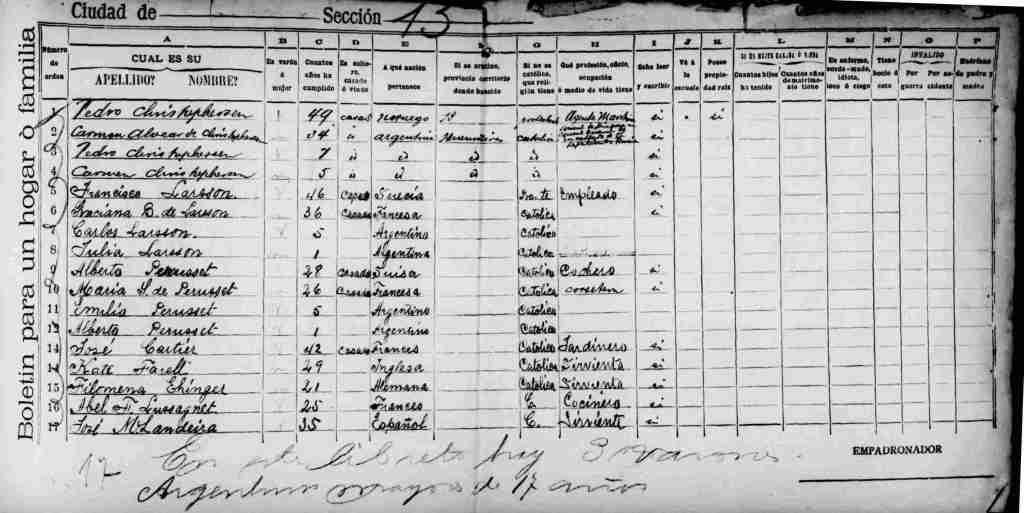 Boletin para un hogar ó familia
Ciudad de Sección 13
A B C D E F G H I J K L M N O P
Número de orden CUAL ES SU APELLIDO? NOMBRE? Es varón ó mujer Cuantos años ha cumplido Es soltero, casado ó viudo A qué nación pertenece Si es argentino, en qué provincia ó territorio donde ha nacido Si no es católico, qué religión tiene Qué profesión, oficio, ocupación ó medio de vida tiene Sabe leer y escribir Vá á la escuela Posee propiedad raiz Cuantos hijos ha tenido Cuantos años de matrimonio tiene Es enfermo, sordo-mudo, idiota, loco ó ciego Tiene bocio ó INVALIDO Por guerra Por accidente Huérfano de padre y madre
1 Pedro Christophersen 49 casad noruego si si
2 Carmen Alvear de Christophersen 34 id argentina catolica si
3 Pedro Christophersen 7 id id id id si
4 Carmen Christophersen 5 id id id id si
5 Francisco Larsson 46 Suecia Empleado si
6 Graciana B. de Larsson 36 Casada Francesa Católica si
7 Carlos Larsson. 5 Argentino Católico
8 Julia Larsson 1 Argentina Católica
9 Alberto Perusset 29 casado Suisa Católico Cochero si
10 Maria S. de Perusset 26 Casada Francesa Católica si
11 Emilia Perusset 5 Argentina Católica
12 Alberto Perusset 1 Argentino Católico
José Cartier 42 casado Frances Católico Jardinero si
14 Kate Farell 29 Inglesa Católica Sirvienta si
15 Filomena Ehinger 21 Alemana Católica Sirvienta si
16 Abel F. Lussagnet 25 Frances C. Cocinero si
17 José M. Landeira 35 Español C. Sirviente si
17 En este libreto hay 3 varones.
EMPADRONADOR
Argentinos mayores de 17 años